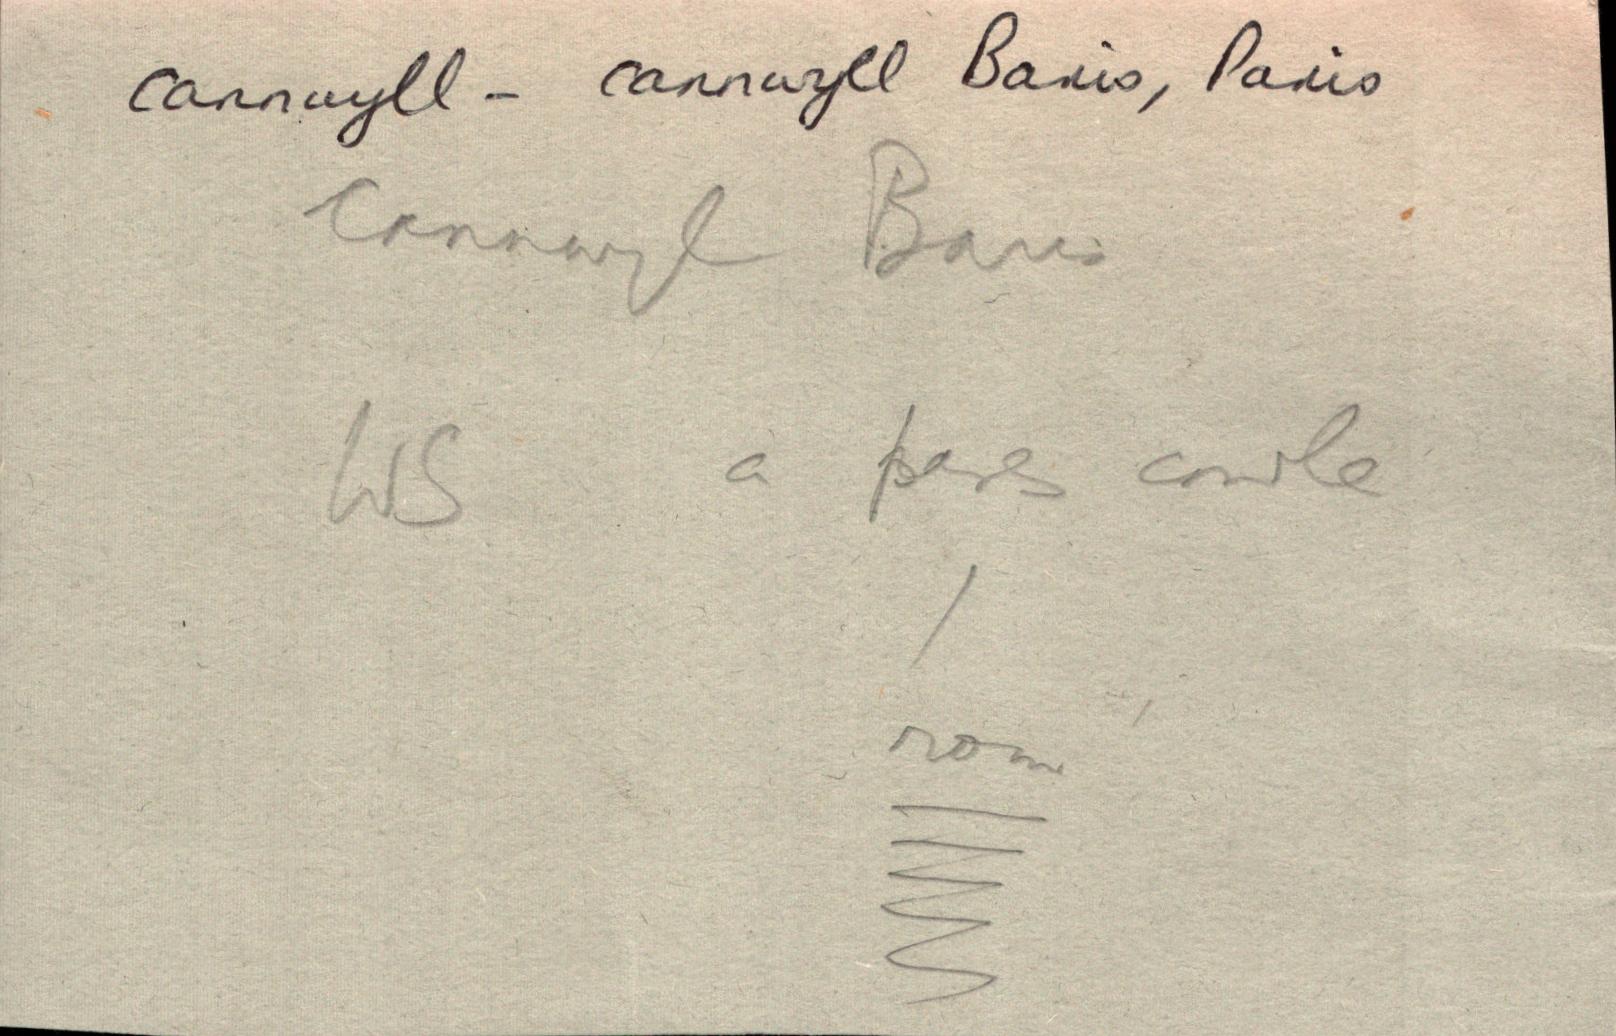 cannwyll - cannwyll Baris, Paris
Cannwyl Baris
WS a pares candle
rom